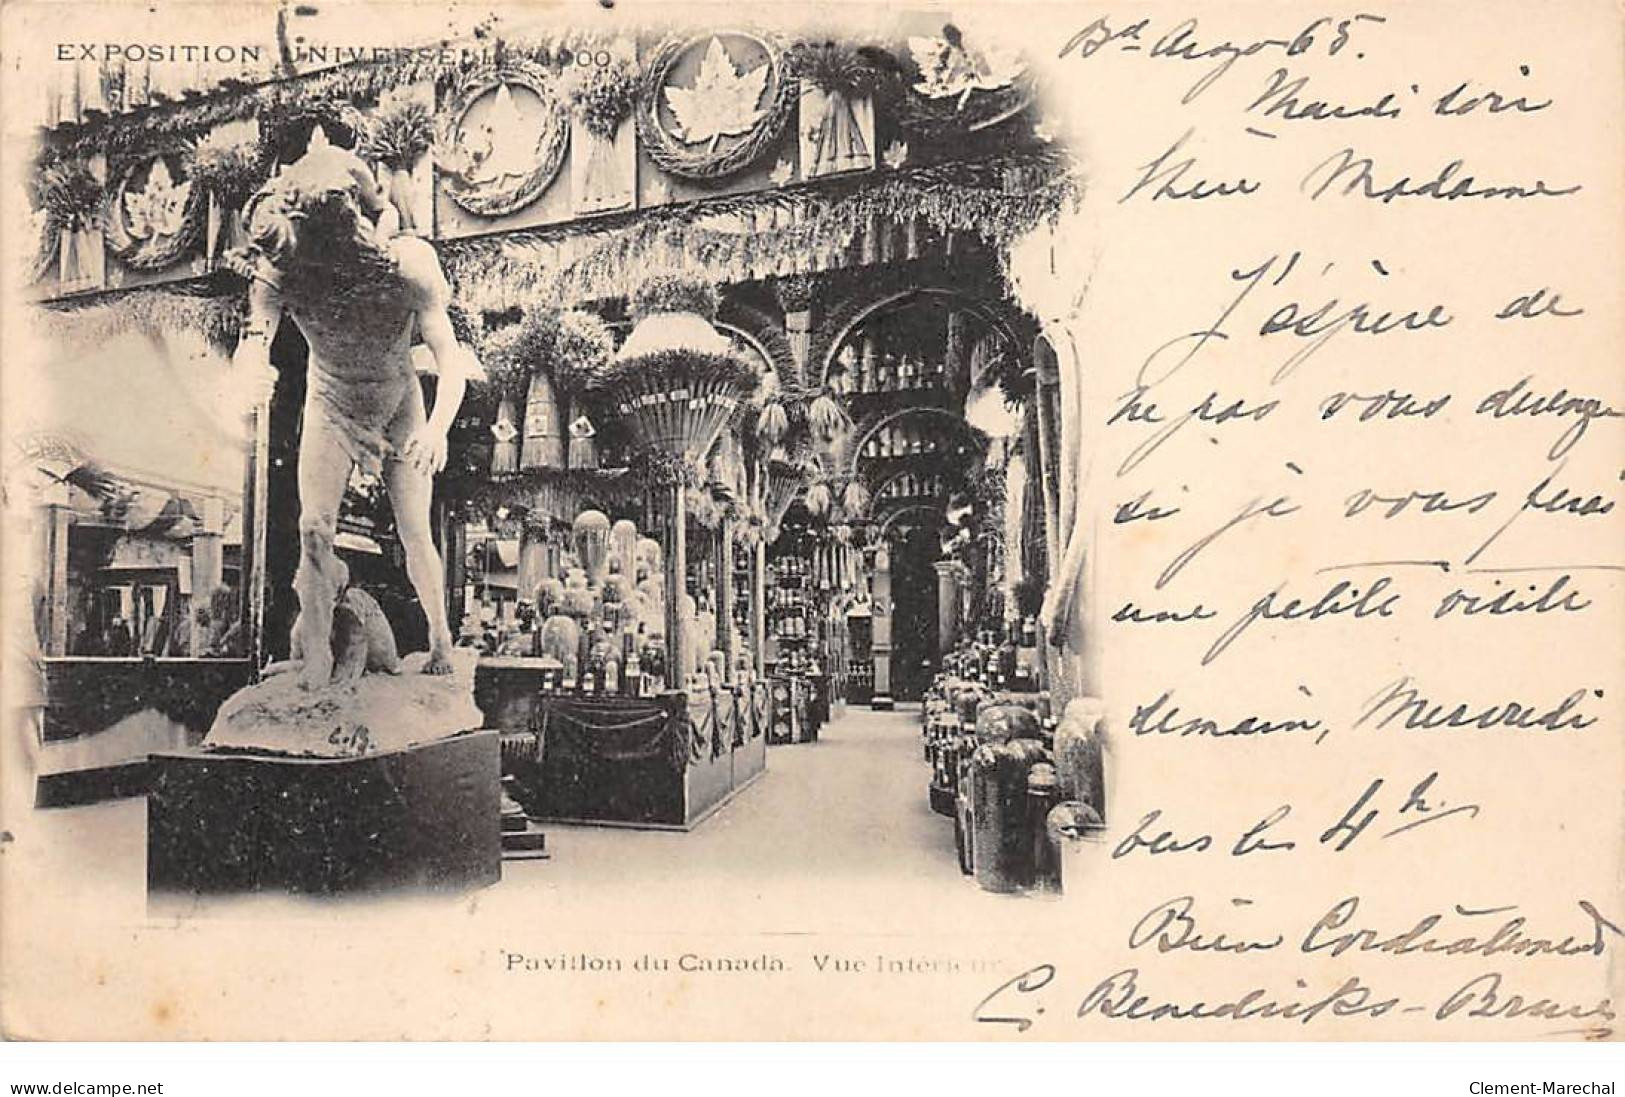 EXPOSITION UNIVERSELLE 1900
Bd Arago 65.
Mardi soir
Chère Madame
J'espère de
ne pas vous deranger
si je vous ferai
une petite visite
demain, Mercredi
vers les 4h
Bien Cordialement
C. Benedicks-Bruce
C.B.
Pavillon du Canada. Vue Intérieure
www.delcampe.net
Clement-Marechal